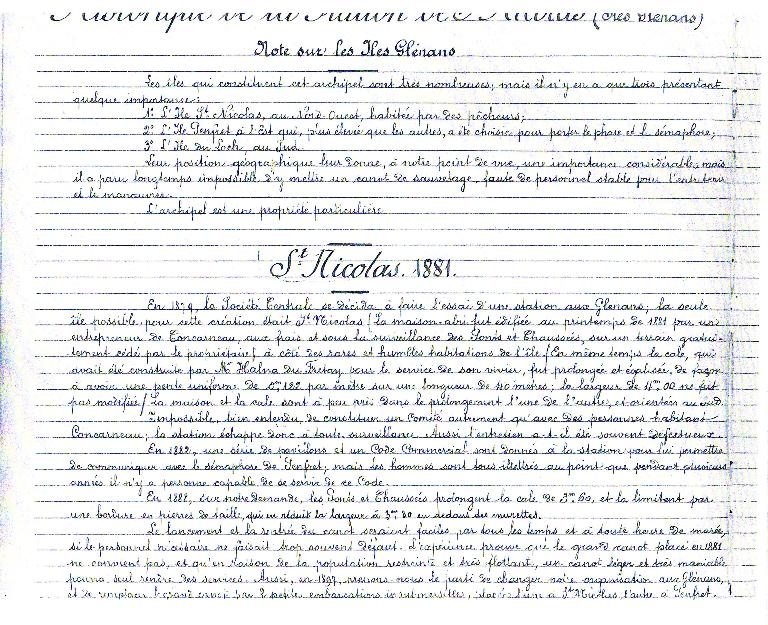 Historique de la Station de St Nicolas (Iles Glénans)
Note sur les Iles Glénans
Les îles qui constituent cet archipel sont très nombreuses, mais il n'y en a que trois présentant
quelque importance:
1º L'Ile St Nicolas, au Nord-Ouest, habitée par des pêcheurs;
2º L'Ile Penfret à l'Est qui, plus élevée que les autres, a été choisie pour porter le phare et le sémaphore;
3º L'Ile du Loch, au Sud.
Leur position géographique leur donne, à notre point de vue, une importance considérable, mais
il a paru longtemps impossible d'y mettre un canot de sauvetage, faute de personnel stable pour l'entretenir
et le manœuvrer.
L'archipel est une propriété particulière.
St Nicolas. 1881.
En 1879, la Société Centrale se décida à faire l'essai d'une station aux Glénans; la seule
île possible pour cette création était St Nicolas / La maison-abri fut édifiée au printemps de 1881 par un
entrepreneur de Concarneau, aux frais et sous la surveillance des Ponts et Chaussées, sur un terrain gratui-
tement cédé par le propriétaire / à côté des rares et humbles habitations de l'île / En même temps la cale, qui
avait été construite par Mr Halna du Fretay pour le service de son vivier, fut prolongée et égalisée, de façon
à avoir une pente uniforme de 0m,122 par mètre sur une longueur de 40 mètres; la largeur de 4m 00 ne fut
pas modifiée / La maison et la cale sont à peu près dans le prolongement l'une de l'autre, et orientées au sud.
Impossible, bien entendu, de constituer un Comité autrement qu'avec des personnes habitant
Concarneau; la station échappe donc à toute surveillance. Aussi l'entretien a-t-il été souvent défectueux.
En 1882, une série de pavillons et un Code Commercial sont donnés à la station pour lui permettre
de communiquer avec le sémaphore de Penfret; mais les hommes sont tous illettrés au point que pendant plusieurs
années il n'y a personne capable de se servir de ce Code.
En 1882, sur notre demande, les Ponts et Chaussées prolongent la cale de 3m,60, et la limitent par
une bordure en pierres de taille, qui en réduit la largeur à 3m 80 en dedans des murettes.
Le lancement et la rentrée du canot seraient faciles par tous les temps et à toute heure de marée,
si le personnel nécessaire ne faisait trop souvent défaut. L'expérience prouve que le grand canot placé en 1881
ne convient pas, et qu'en raison de la population restreinte et très flottant, un canot léger et très maniable
pourra seul rendre des services. Aussi, en 1897, prenons-nous le parti de changer notre organisation aux Glénans,
et de remplacer le grand canot par 2 petites embarcations insubmersibles, placées l'une à St Nicolas, l'autre à Penfret.